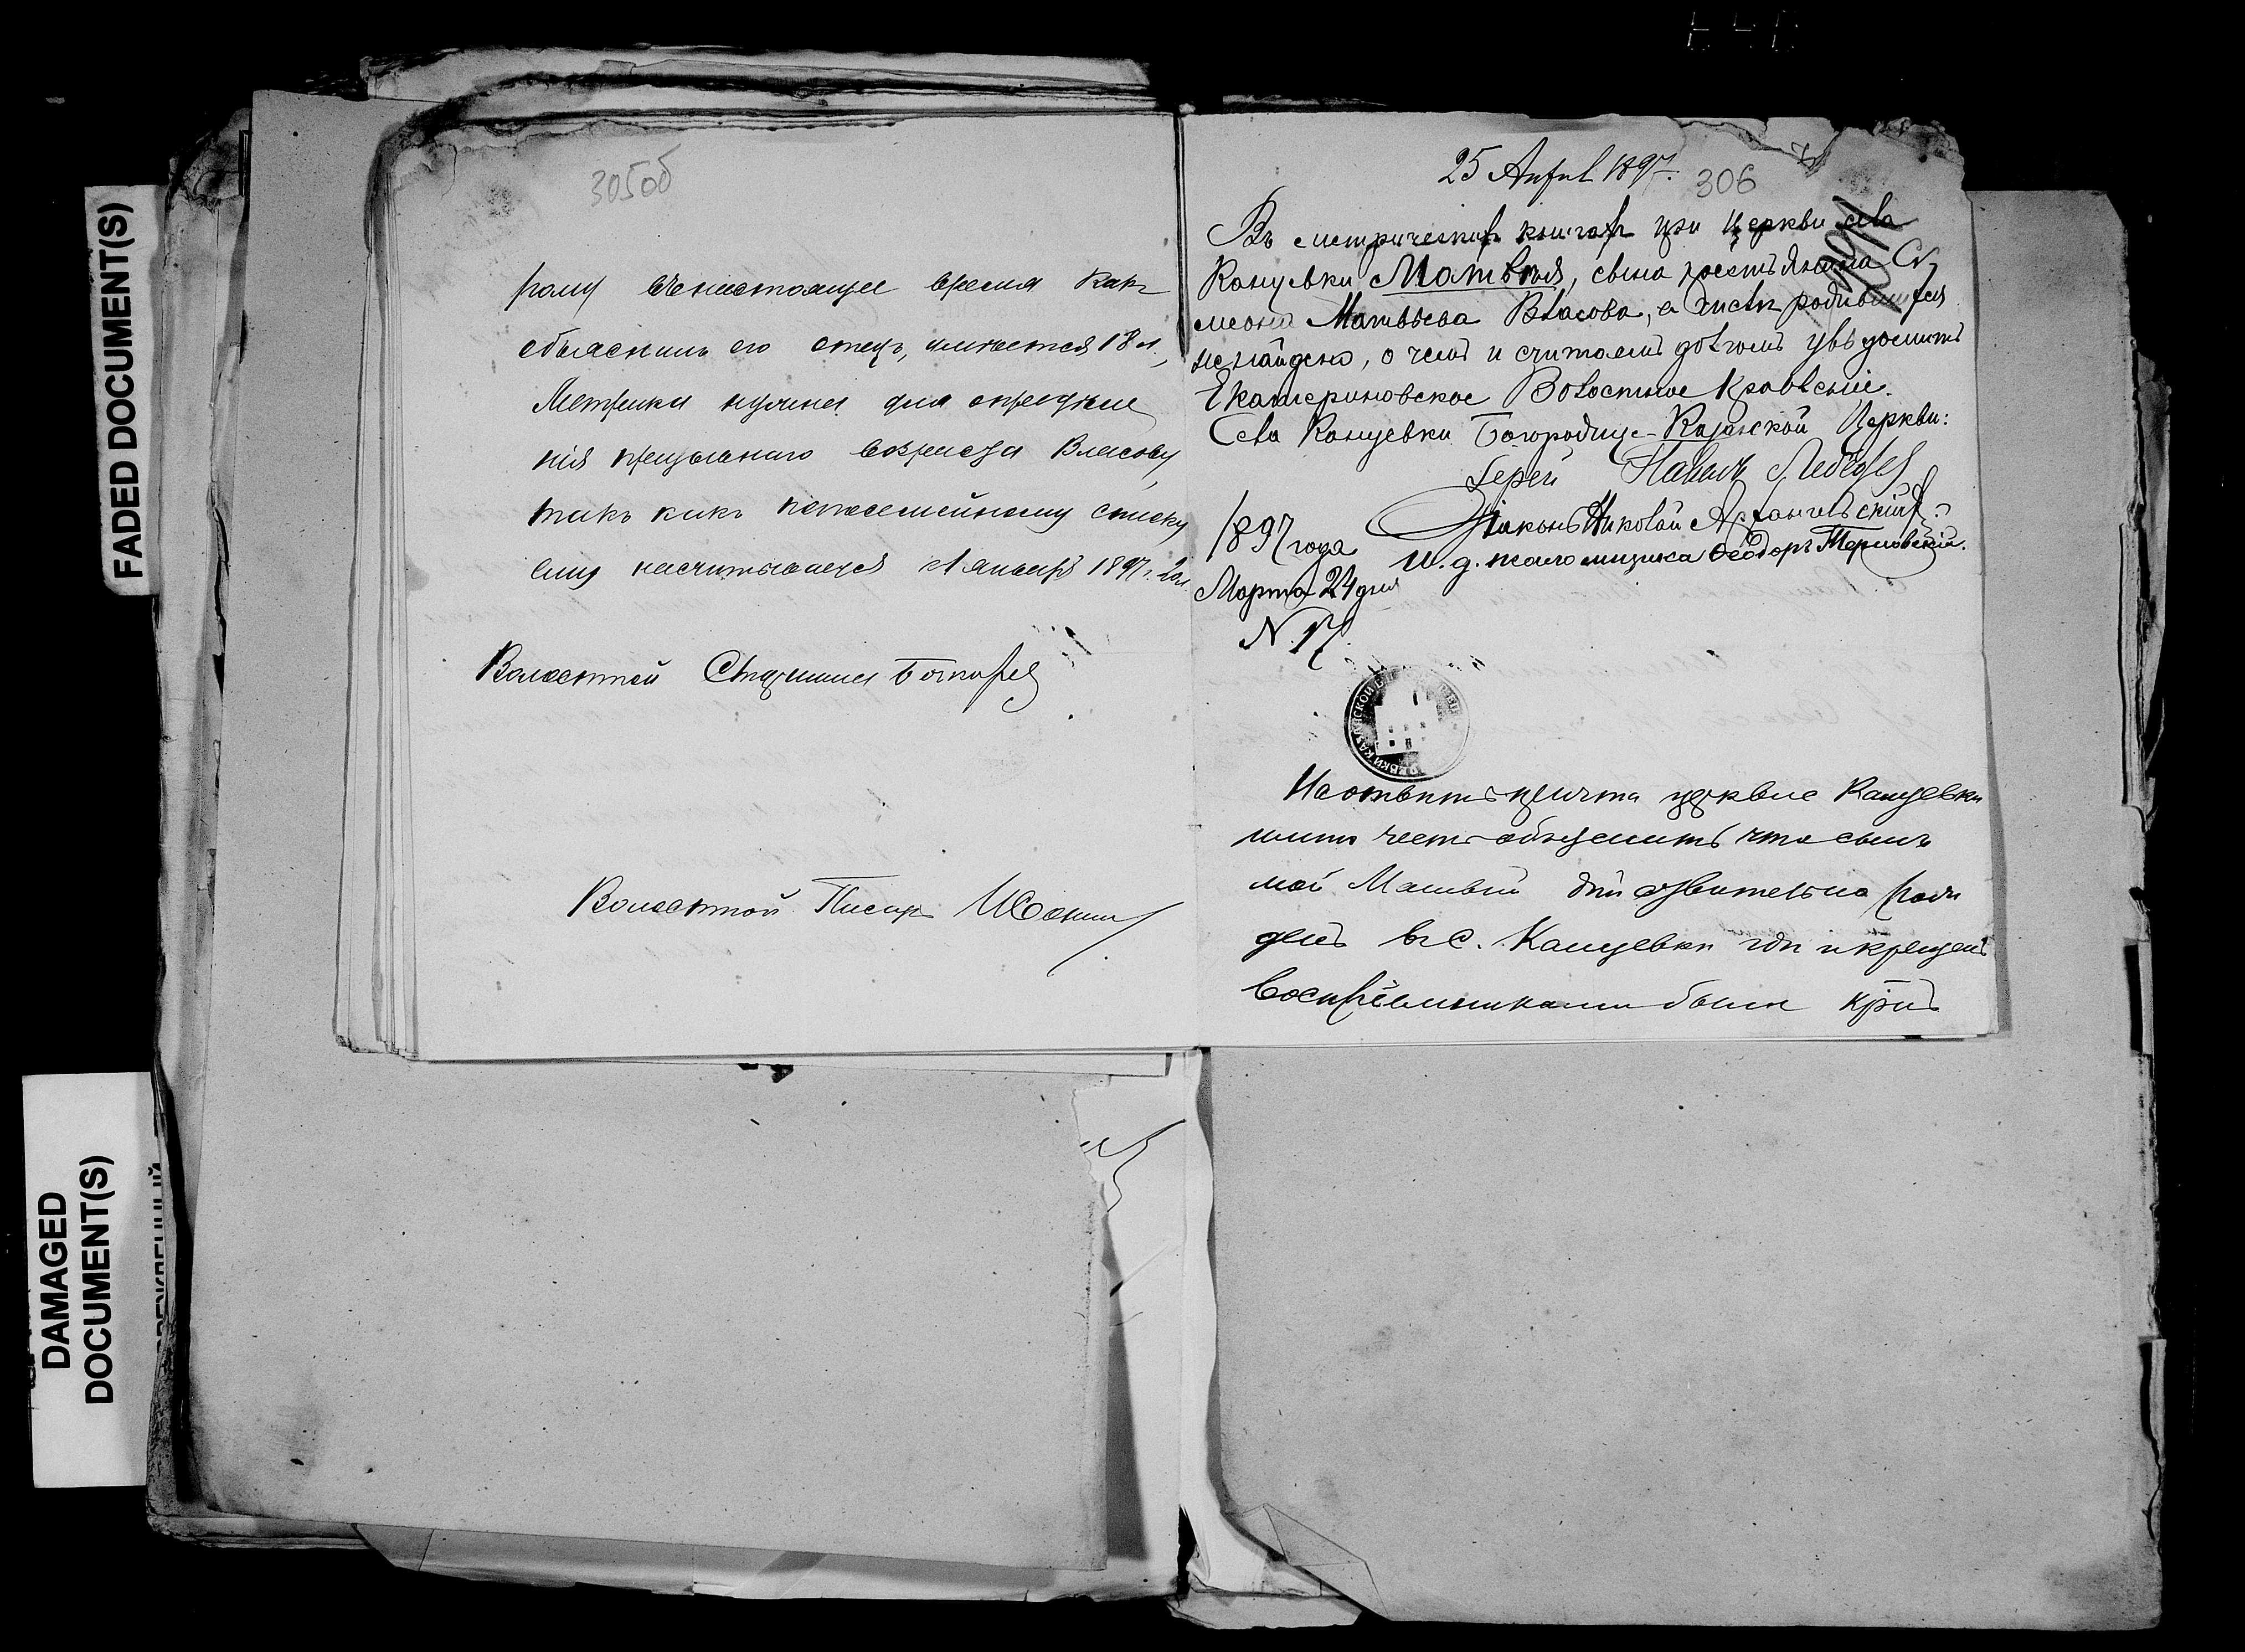 FADED DOCUMENT(S)
DAMAGED
DOCUMENT(S)
305об
рому въ настоящее время какъ
объяснилъ его отецъ, имѣется 18 л.,
Метрика нужна для опредѣле
нія призывнаго возраста Власову,
такъ какъ по посемейному списку
ему насчитывается 1 Января 1897 г. 20 л.
Волостной Старшина
Волостной Писарь
25 1897. 306
Въ метрическихъ книгахъ при церкви села
Кануевки Матвѣя, сына крестьянина Си
меона Матвѣева Власова, въ числѣ родившихся
не найдено, о чемъ и считаемъ долгомъ увѣдомить
Екатериновское Волостное Правленіе.
Села Кануевки Богородице-Казанской Церкви:
Іерей Павелъ Лебедев
Діаконъ Николай Архангельскій
И. д. псаломщика Ѳеодоръ Терновскій.
1897 года
Марта 24 дня
N. 17.
На отвѣтъ причта церкви с Кануевки
имѣю честь объяснить что сынъ
мой Матвѣй дѣйствительно рож
денъ въ с. Кануевки гдѣ и крещенъ
Воспріемниками были кр